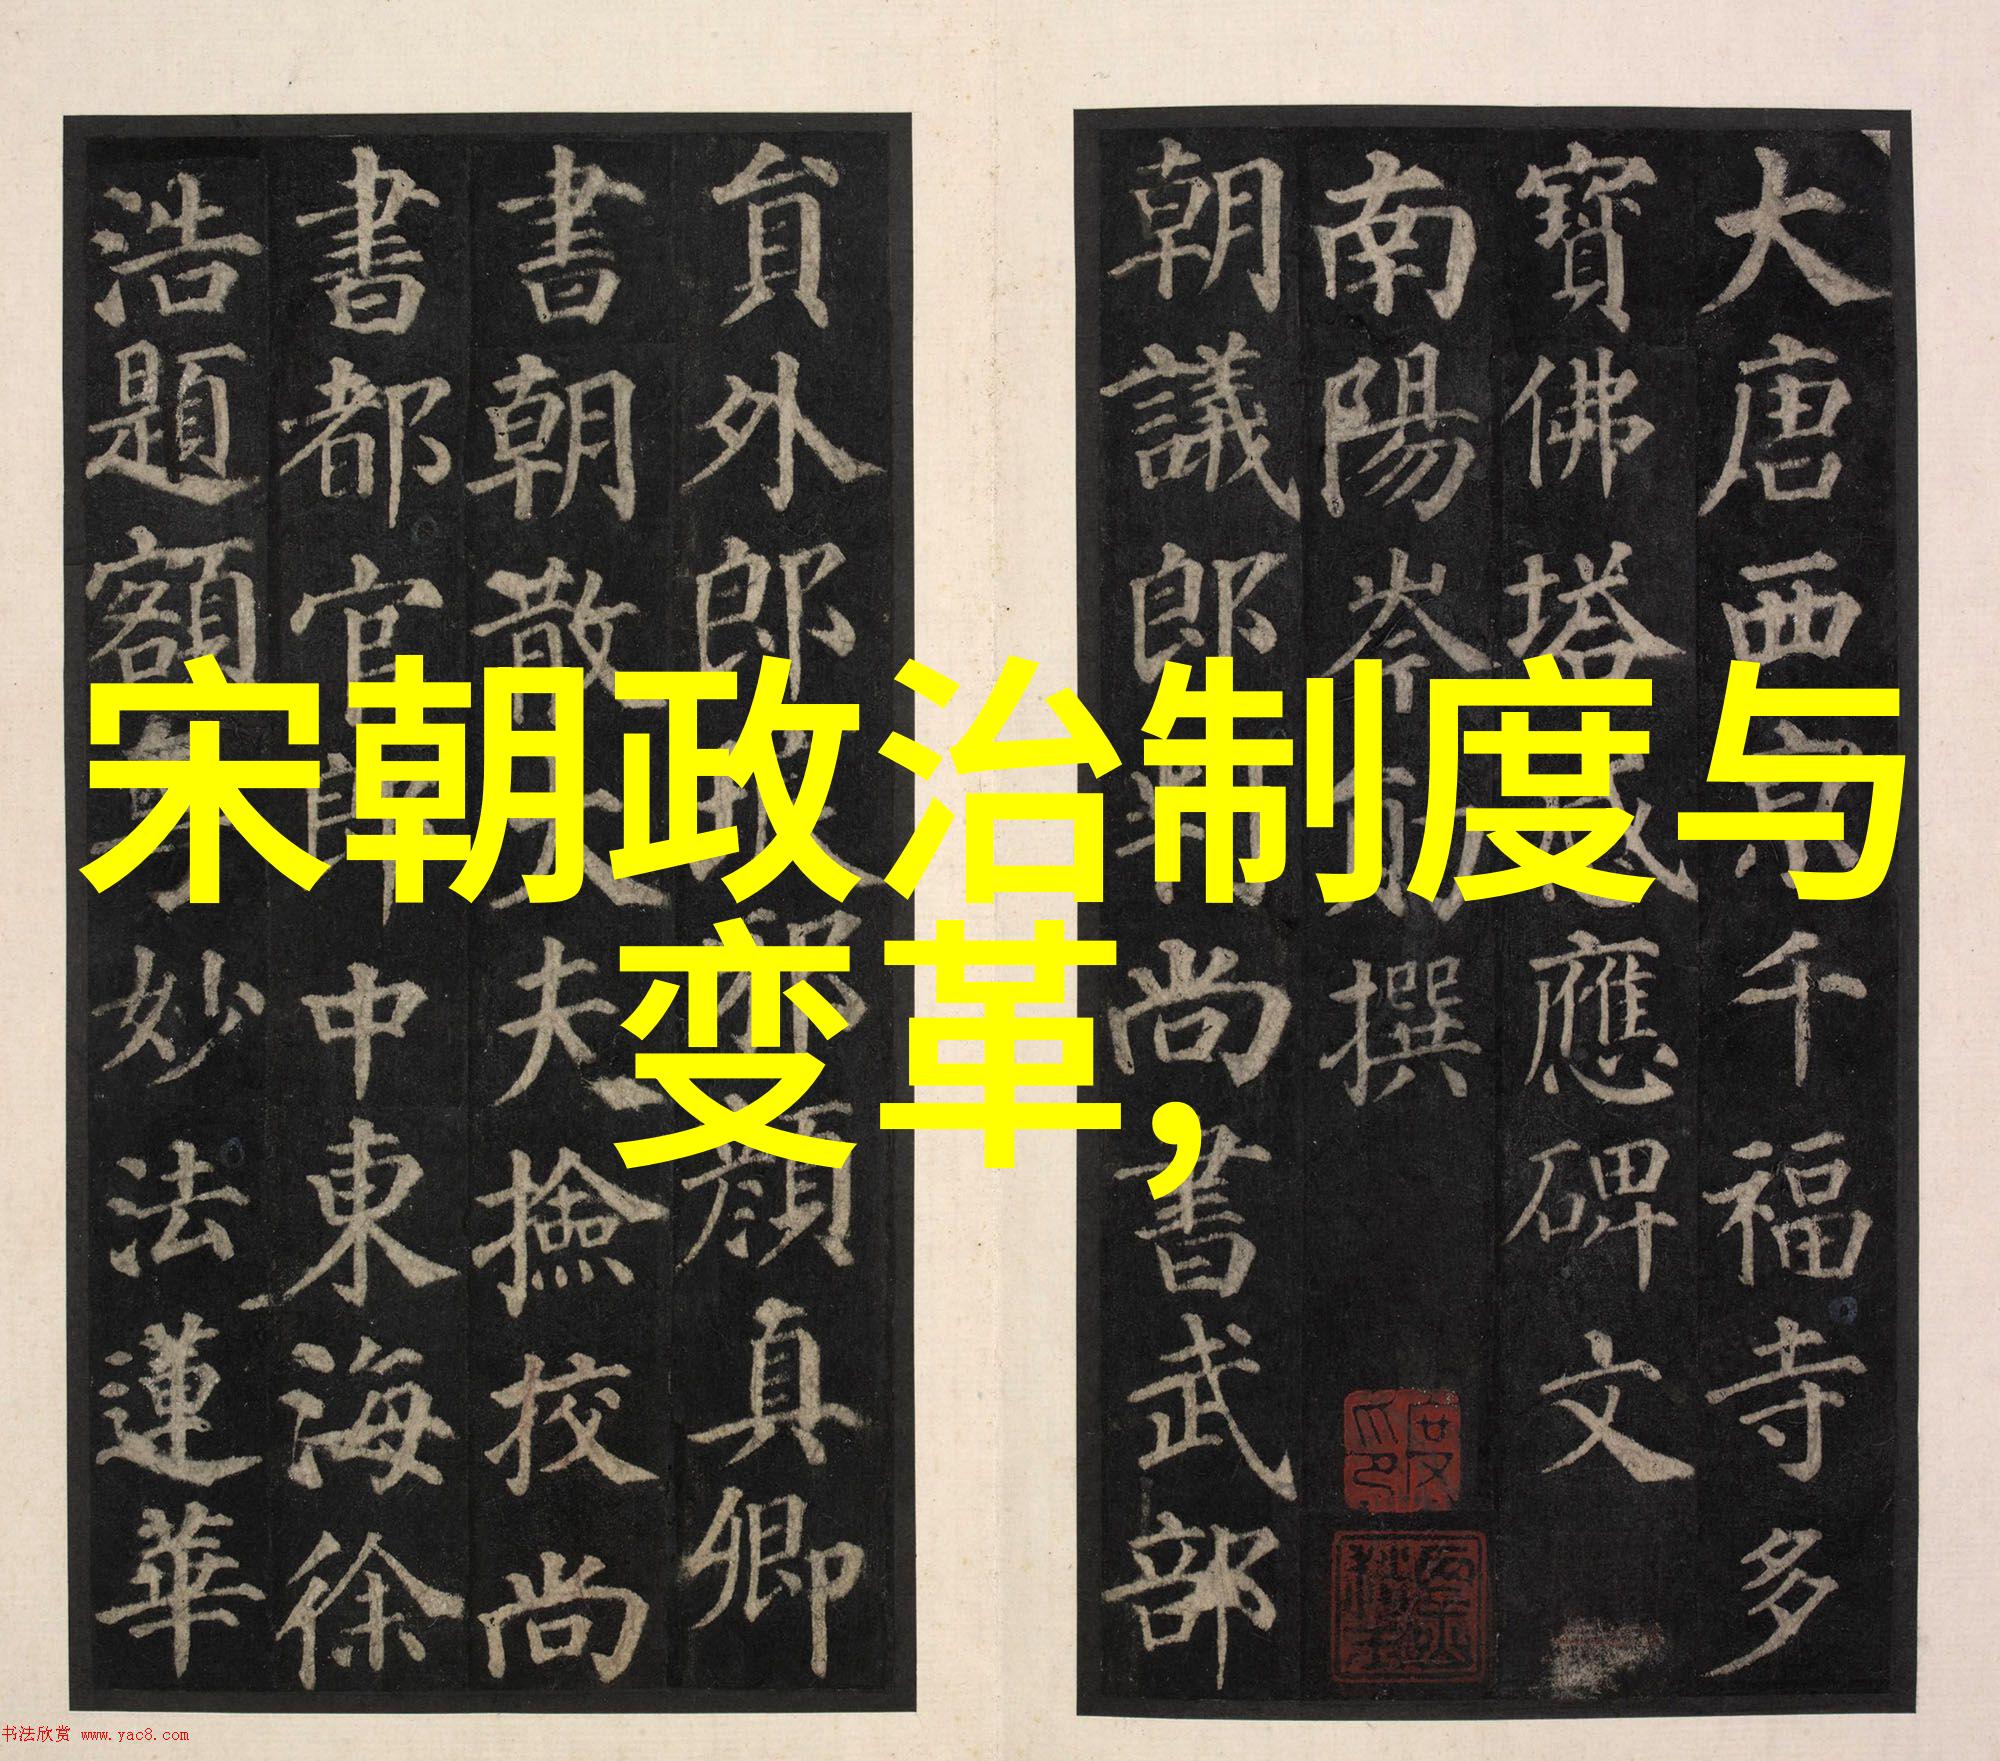 大唐西京千福寺多
寶佛塔感應碑文
南陽岑勛撰
朝議郎判尚書武部
貟外郎琅邪顏真卿
書朝散大夫撿校尚
書都官郎中東海徐
浩題額
妙法蓮華
宋朝政治制度与
变革,
书法欣赏 www.yac8.com